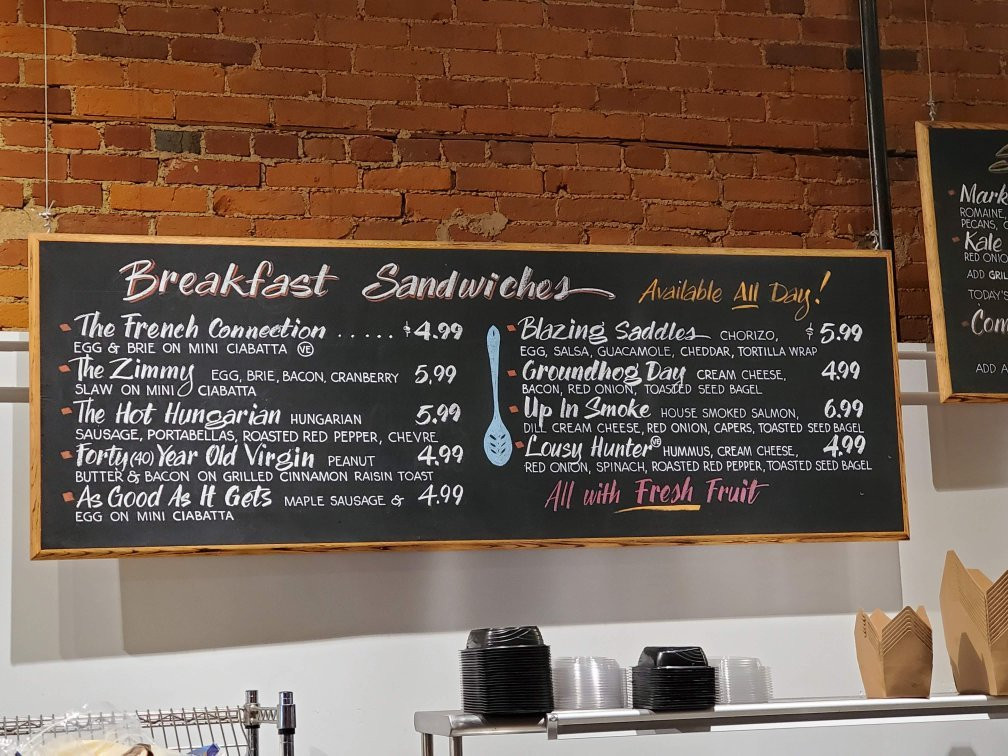 Breakfast Sandwiches Available All Day!
The French Connection ..... $4.99
EGG & BRIE ON MINI CIABATTA VE
The Zimmy EGG, BRIE, BACON, CRANBERRY 5.99
SLAW ON MINI CIABATTA
The Hot Hungarian HUNGARIAN 5.99
SAUSAGE, PORTABELLAS, ROASTED RED PEPPER, CHEVRE
Forty (40) Year Old Virgin PEANUT 4.99
BUTTER & BACON ON GRILLED CINNAMON RAISIN TOAST
As Good As It Gets MAPLE SAUSAGE & 4.99
EGG ON MINI CIABATTA
Blazing Saddles CHORIZO, $5.99
EGG, SALSA, GUACAMOLE, CHEDDAR, TORTILLA WRAP
Groundhog Day CREAM CHEESE, 4.99
BACON, RED ONION, TOASTED SEED BAGEL
Up In Smoke HOUSE SMOKED SALMON, 6.99
DILL CREAM CHEESE, RED ONION, CAPERS, TOASTED SEED BAGEL
Lousy Hunter VE HUMMUS, CREAM CHEESE, 4.99
RED ONION, SPINACH, ROASTED RED PEPPER, TOASTED SEED BAGEL
All with Fresh Fruit
Mark
ROMAINE
PECANS,
Kale
RED ONIO
ADD GRIL
TODAY'S
Con
ADD A